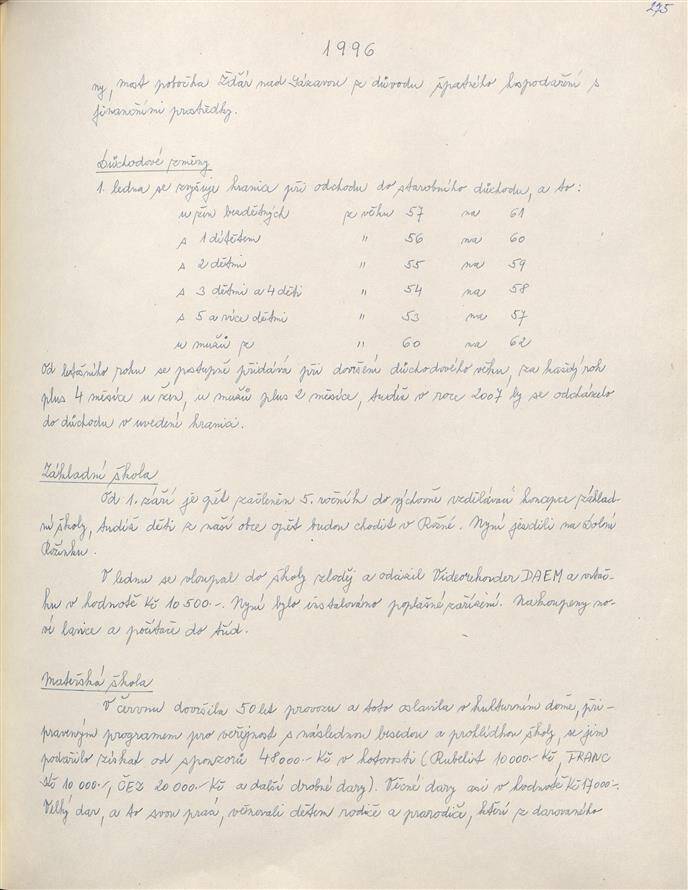 275
1996
ny, most pobočka Žďár nad Sázavou z důvodu špatného hospodaření s
finančními prostředky.
Důchodové změny
1. ledna se zvyšuje hranice při odchodu do starobního důchodu, a to:
u žen bezdětných z věku 57 na 61
s 1 dítětem " 56 na 60
s 2 dětmi " 55 na 59
s 3 dětmi a 4 dětmi " 54 na 58
s 5 a více dětmi " 53 na 57
u mužů z " 60 na 62
Od letošního roku se postupně přidává při dovršení důchodového věku, za každý rok
plus 4 měsíce u žen, u mužů plus 2 měsíce, tudíž v roce 2007 by se odcházelo
do důchodu v uvedené hranici.
Základní škola
Od 1. září je opět začleněn 5. ročník do výchovně vzdělávací koncepce základ-
ní školy, tudíž děti z naší obce opět budou chodit v Rožné. Nyní jezdili na Dolní
Rožínku.
V lednu se vloupal do školy zloděj a odcizil Videorekorder DAEM a vrtač-
ku v hodnotě Kč 10 500.-. Nyní bylo instalováno poplašné zařízení. Nakoupeny no-
vé lavice a počítače do tříd.
Mateřská škola
V červnu dovršila 50 let provozu a toto oslavila v kulturním domě, při-
praveným programem pro veřejnost s následnou besedou a prohlídkou školy, se jim
podařilo získat od sponzorů 48 000.- Kč v hotovosti (Rubelit 10 000.- Kč, FRANC
Kč 10 000.-, ČEZ 20 000.- Kč a další drobné dary). Věcné dary asi v hodnotě Kč 17 000.-.
Velký dar, a to svou prací, věnovali dětem rodiče a prarodiče, kteří z darovaného